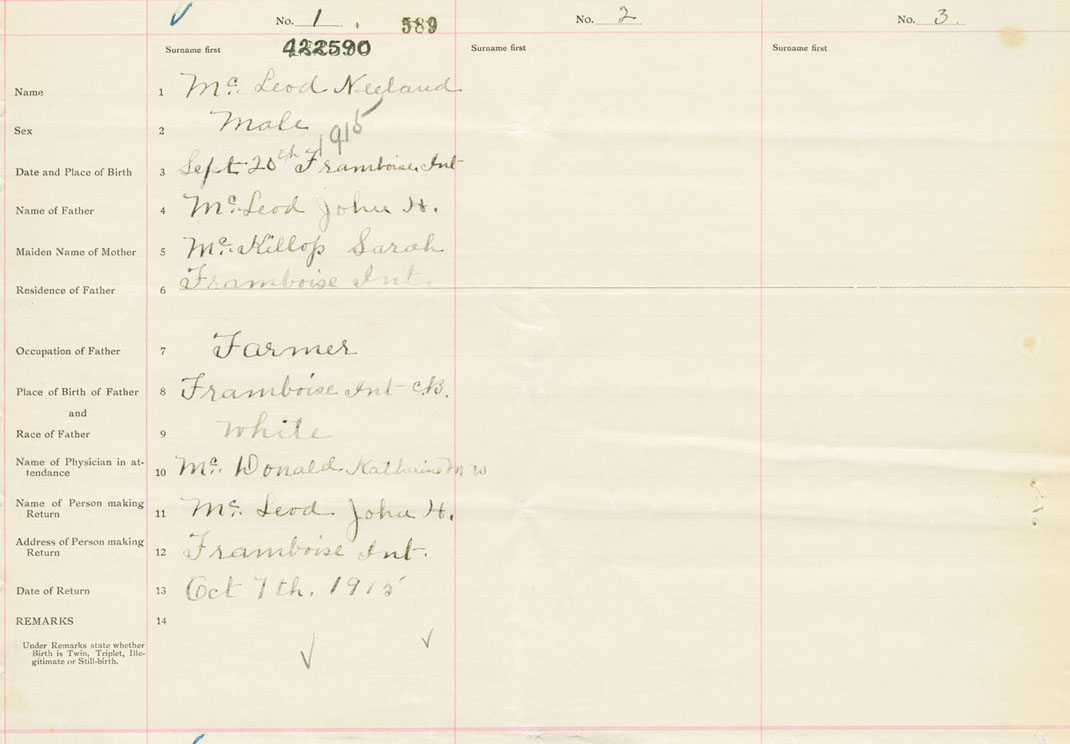 No. 1. 589 No. 2 No. 3.
Surname first 422590 Surname first Surname first
Name 1 Mc. Leod Neeland
Sex 2 Male
1915
Date and Place of Birth 3 Sept. 20th Framboise Int
Name of Father 4 Mc. Leod John H.
Maiden Name of Mother 5 Mc. Killop Sarah
Residence of Father 6 Framboise Int.
Occupation of Father 7 Farmer
Place of Birth of Father 8 Framboise Int C.B.
and
Race of Father 9 White
Name of Physician in at-
tendance 10 Mc. Donald Katherine M W
Name of Person making
Return 11 Mc. Leod John H.
Address of Person making
Return 12 Framboise Int.
Date of Return 13 Oct 7th. 1915
REMARKS 14
Under Remarks state whether
Birth is Twin, Triplet, Ille-
gitimate or Still-birth.